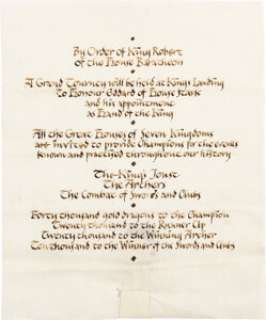 By Order of King Robert
of the House Baratheon
A Grand Tourney will be held at Kings Landing
to Honour Eddard of House Stark
and his appointment
as Hand of the King
All the Great Houses of Seven Kingdoms
are invited to provide Champions for the events
known and practised throughout our history
The Kings Joust
The Archers
The Combat of Swords and Clubs
Forty thousand gold dragons to the Champion
Twenty thousand to the Runner Up
Twenty thousand to the Winning Archer
Ten thousand to the Winner of the Swords and Clubs